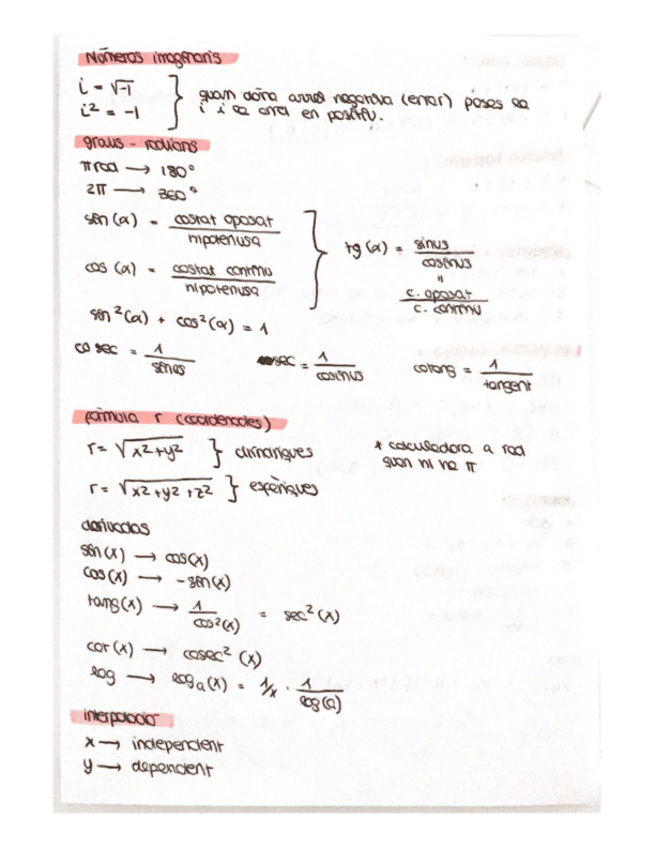 Números imaginaris
i = √-1
i² = -1
quan dóna arrel negativa (error) poses la
i i la arrel en positiu.
graus - radians
π rad → 180°
2π → 360°
sen(α) = costat oposat / hipotenusa
cos(α) = costat continu / hipotenusa
tg(α) = sinus / cosinus
= c. oposat / c. continu
sen²(α) + cos²(α) = 1
cosec = 1 / sinus
sec = 1 / cosinus
cotang = 1 / tangent
fórmula r (coordenades)
r = √x2+y2 } cilindriques
r = √x2+y2+z2 } esfèriques
* calculadora a rad
quan hi ha π
derivades
sen(x) → cos(x)
cos(x) → -sen(x)
tang(x) → 1 / cos²(x) = sec²(x)
cot(x) → cosec²(x)
log → log a(x) = 1/x · 1 / log(a)
interpolació
x → independent
y → dependent